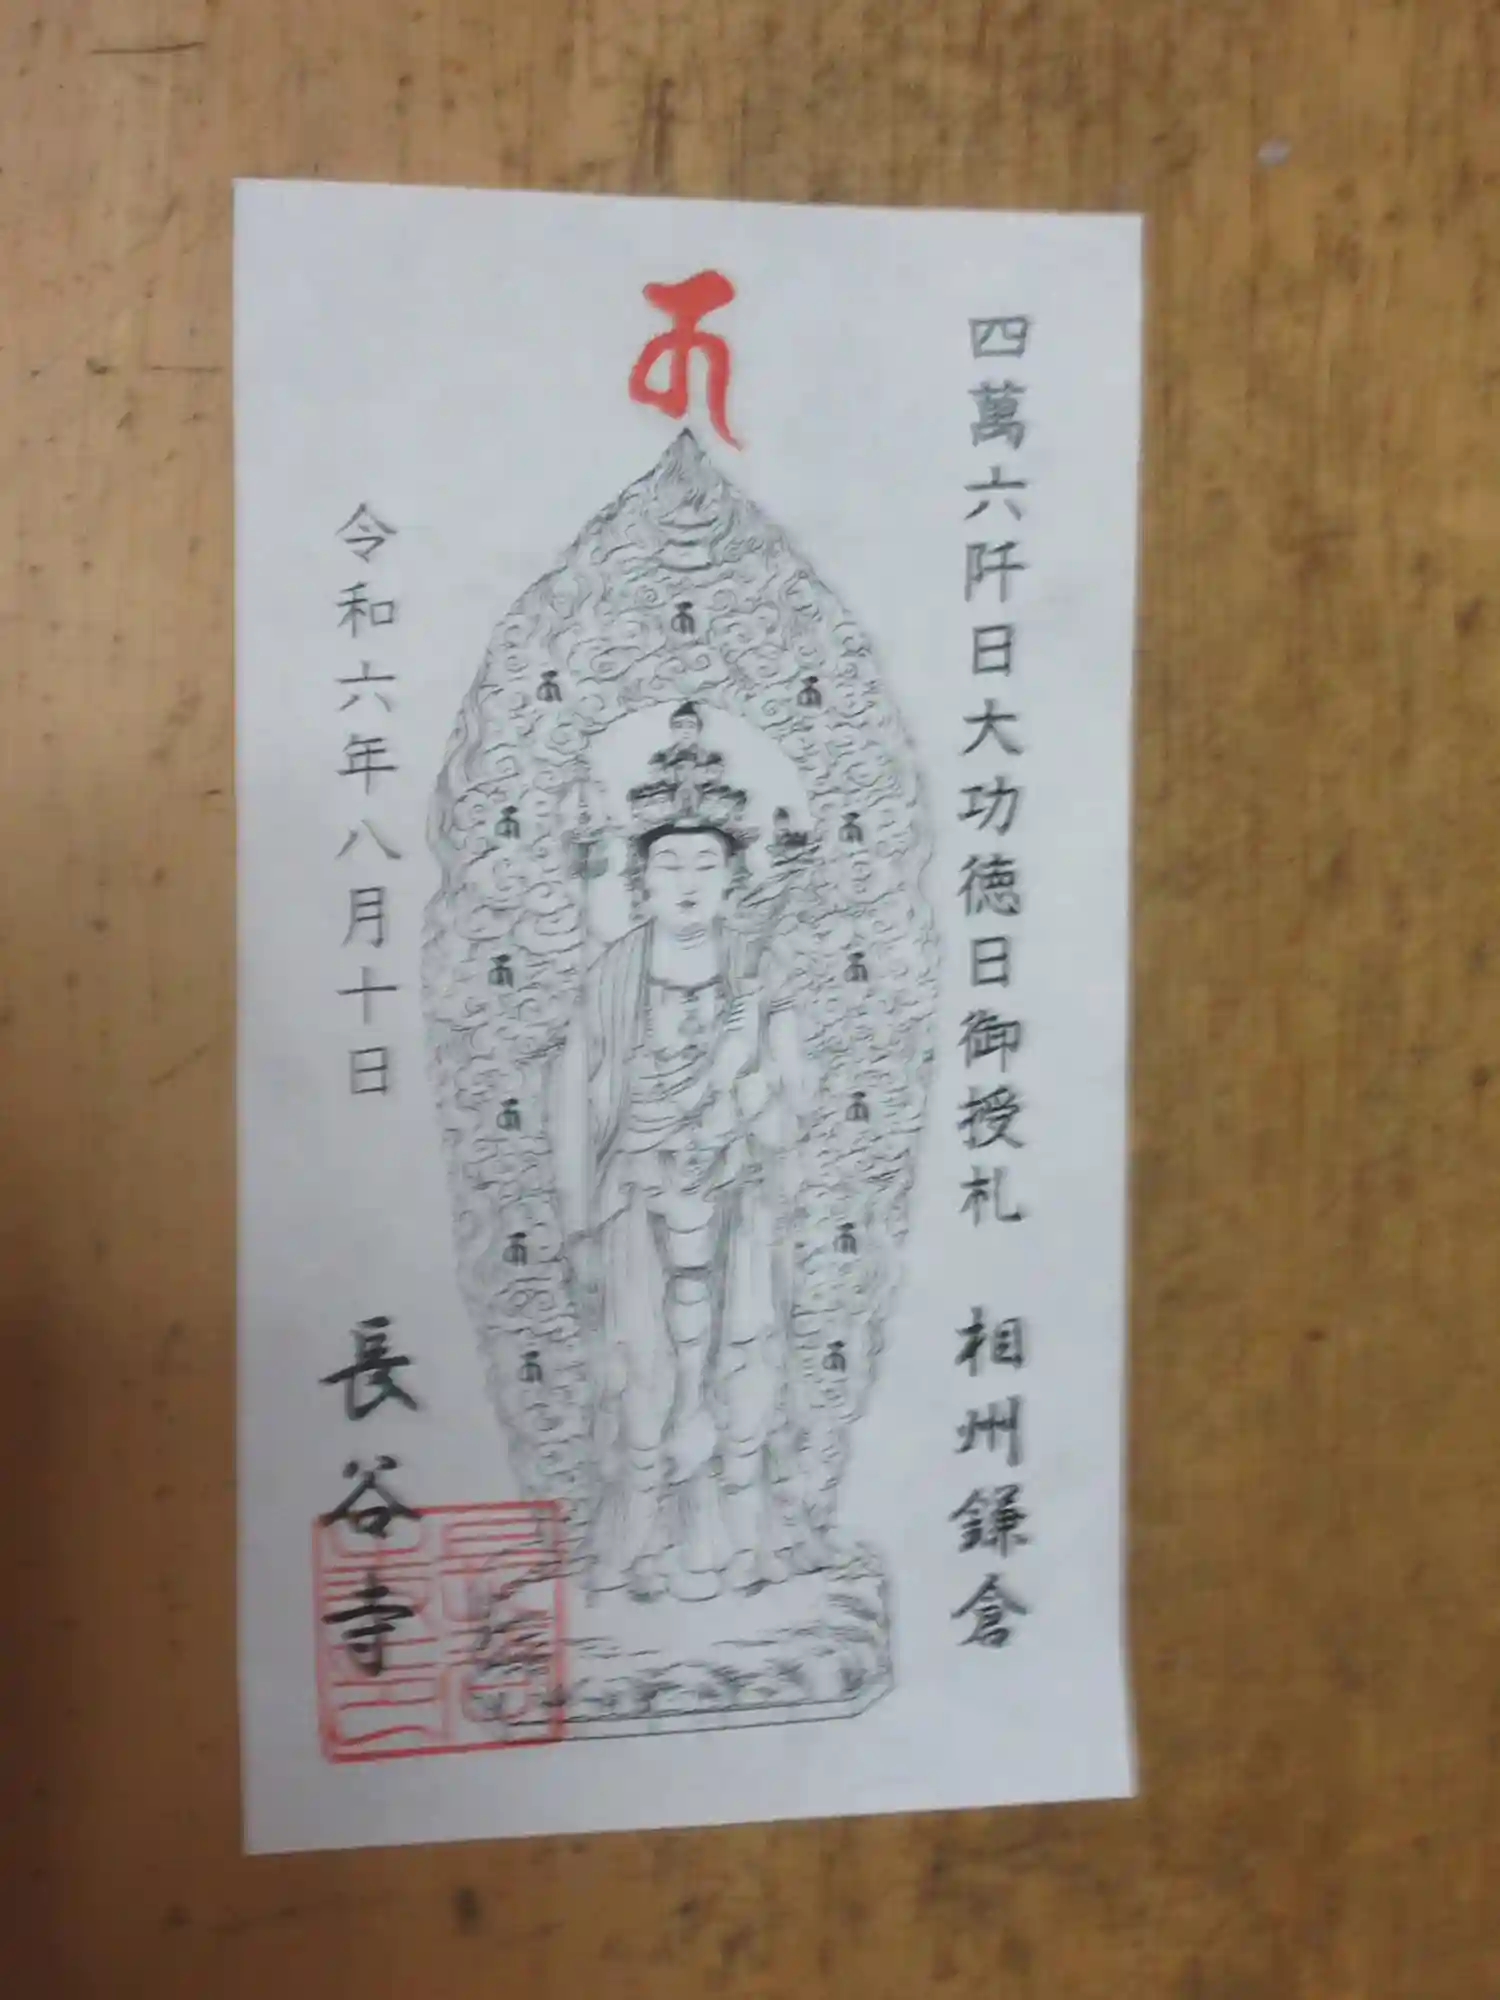 四萬六阡日大功徳日御授札　相州鎌倉
令和六年八月十日
長谷寺